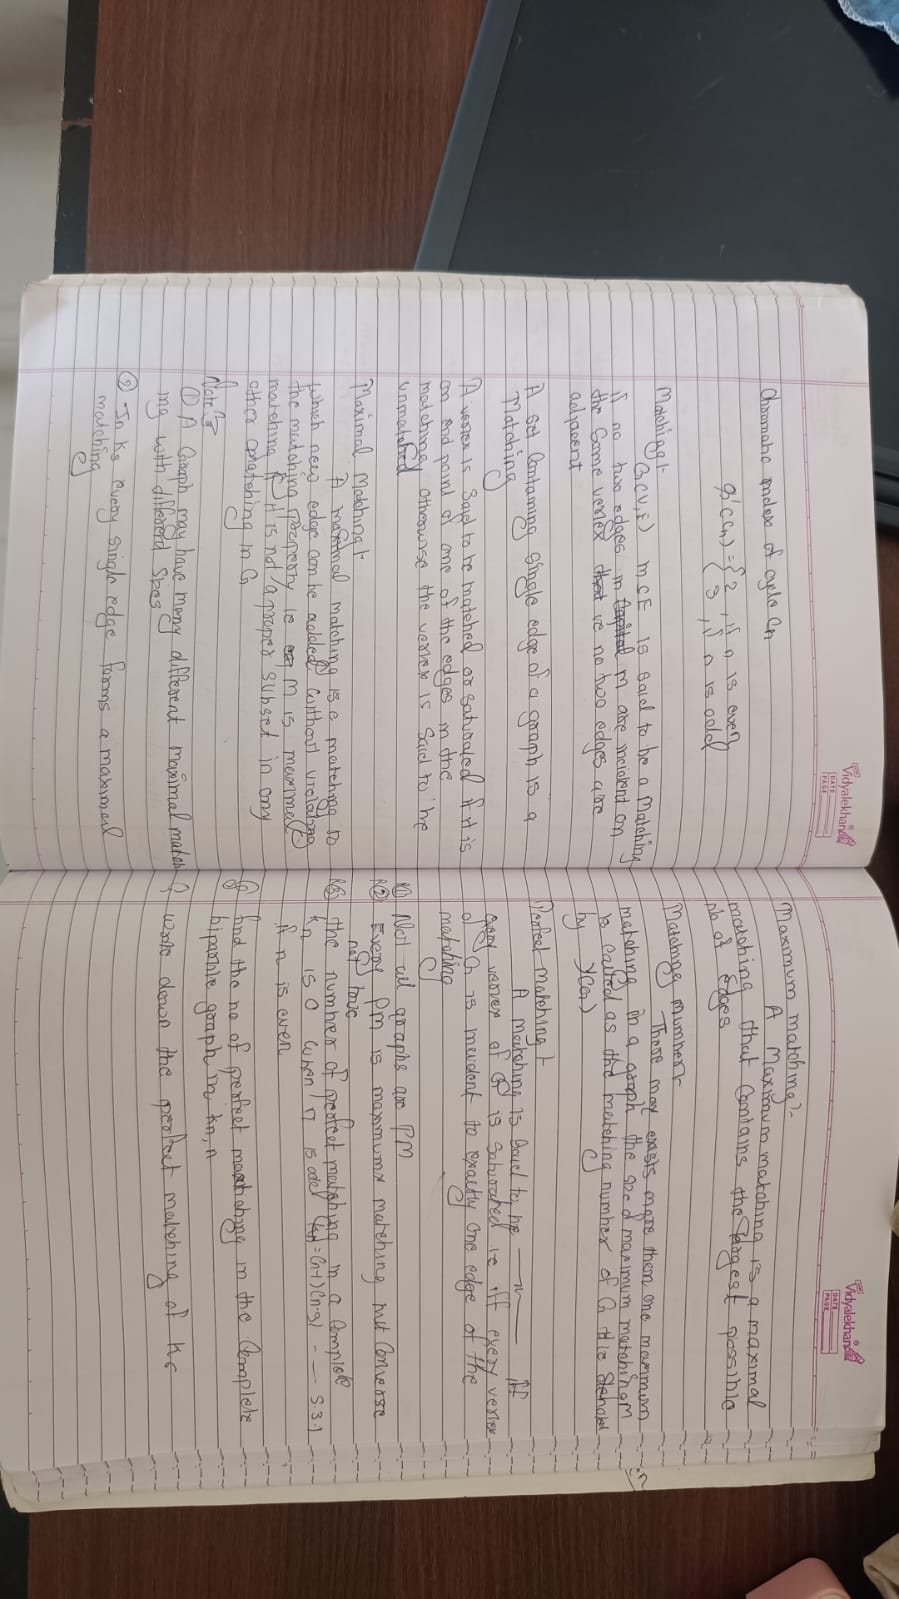 Vidyalekhan
DATE
PAGE
Chromatic index of cycle Cn
(Cn) = { 2 , if n is even
{ 3 , if n is odd
Matching:-
G(V,E) M⊂E is said to be a Matching
if no two edges in M are incident on
the same vertex ie no two edges are
adjacent
A set Containing single edge of a graph is a
Matching
A vertex is said to be matched or saturated if it is
an end point of one of the edges in the
matching otherwise the vertex is said to be
unmatched
Maximal Matching:-
A maximal matching is a matching to
which new edge can be added without violating
the matching property ie M is maximal
matching if it is not a proper subset in any
other matching in G
Note
① A Graph may have many different maximal match
ing with different Sizes
② In K3 every single edge forms a maximal
matching
Vidyalekhan
DATE
PAGE
Maximum matching:-
A Maximum matching is a maximal
matching that contains the largest possible
no of edges
Matching number:-
There may exists more then one maximum
matching in a graph the maximum matching M
is called as the matching number of G
by γ(G)
Perfect matching:-
A matching is said to be — — iff
vertex of G is saturated ie iff every vertex
of G is incident to exactly one edge of the
matching
Not all graphs are PM
R② Every PM is maximum matching but Converse
not true
R③ the number of perfect matching in a Complete
Kn is 0 when n is odd = (n-1)(n-3) - — 5.3.1
if n is even
Q find the no of perfect matching in the Complete
bipartite graph in Kn,n
Q write down the perfect matching of K6